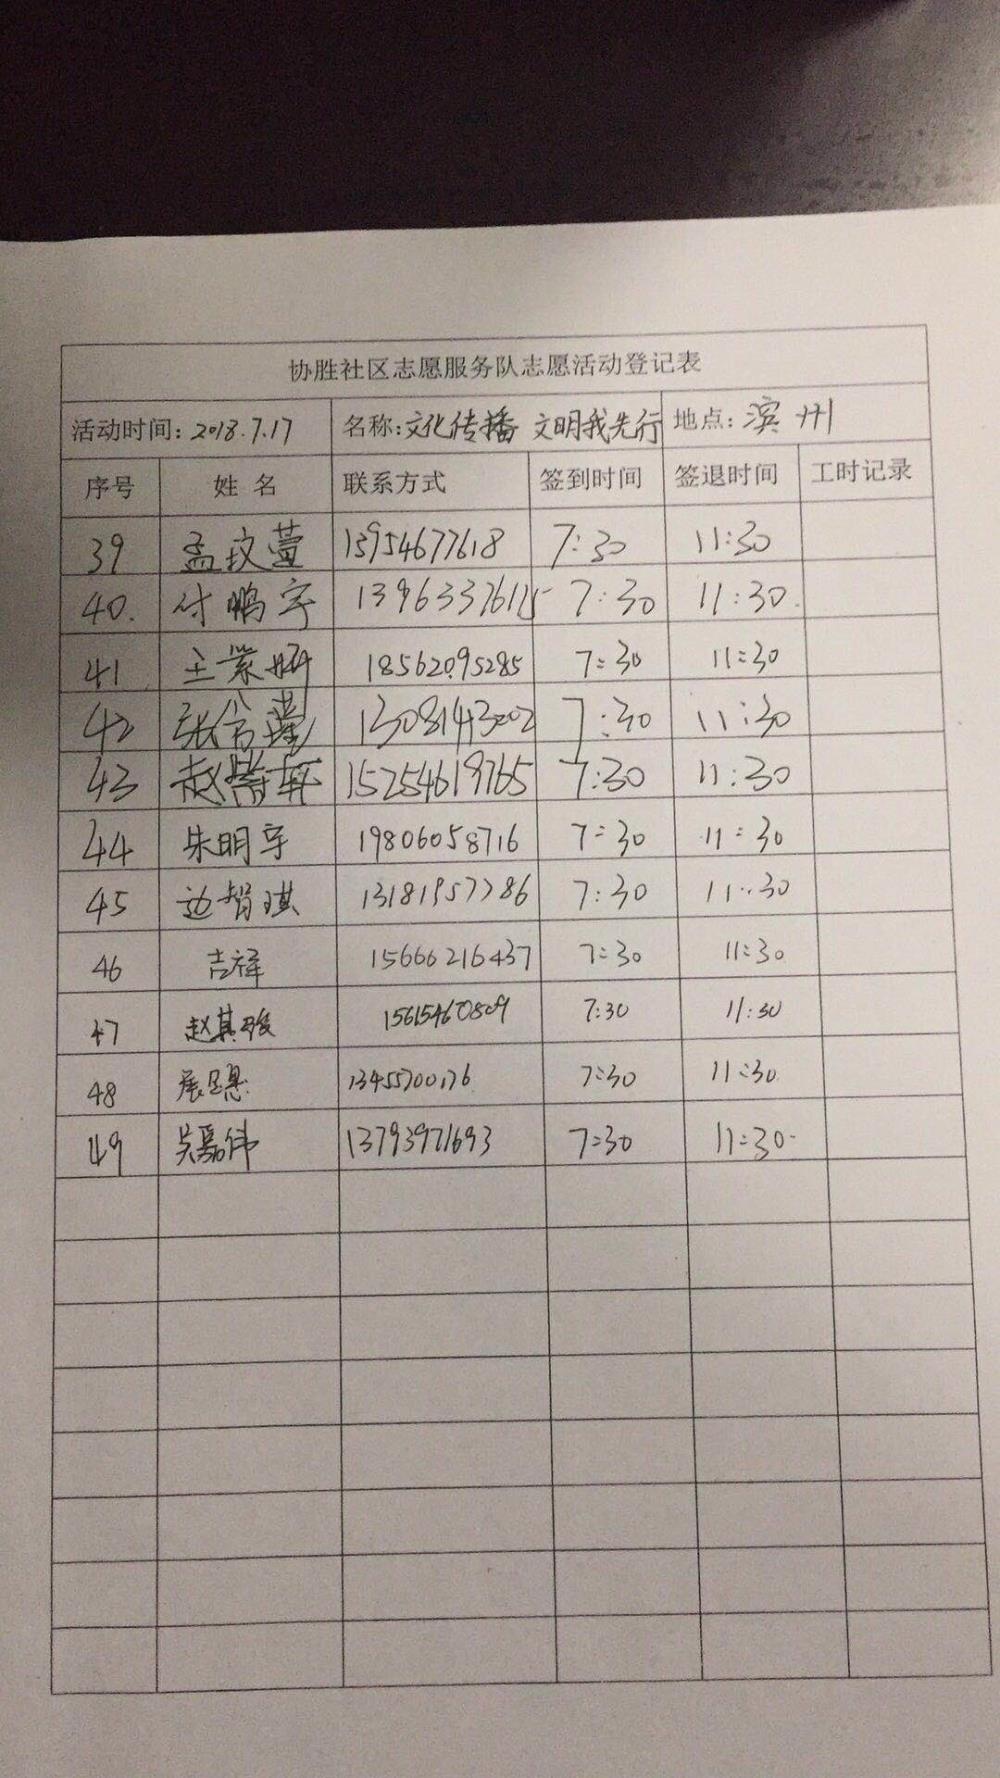 协胜社区志愿服务队志愿活动登记表
活动时间：2018.7.17 名称：文化传播 文明我先行 地点：滨州
序号 姓名 联系方式 签到时间 签退时间 工时记录
39 孟玟萱 13954677618 7:30 11:30
40. 付鹏宇 7:30 11:30.
41 18562095285 7:30 11:30
42 13081413002 7:30 11:30
43 15254619765 7:30 11:30
44 朱明宇 19806058716 7:30 11:30
45 边智琪 7:30 11:30
46 吉祥 15666216437 7:30 11:30
47 赵其骏 15615460809 7:30 11:30
48 7:30 11:30
49 吴嘉伟 13793971693 7:30 11:30